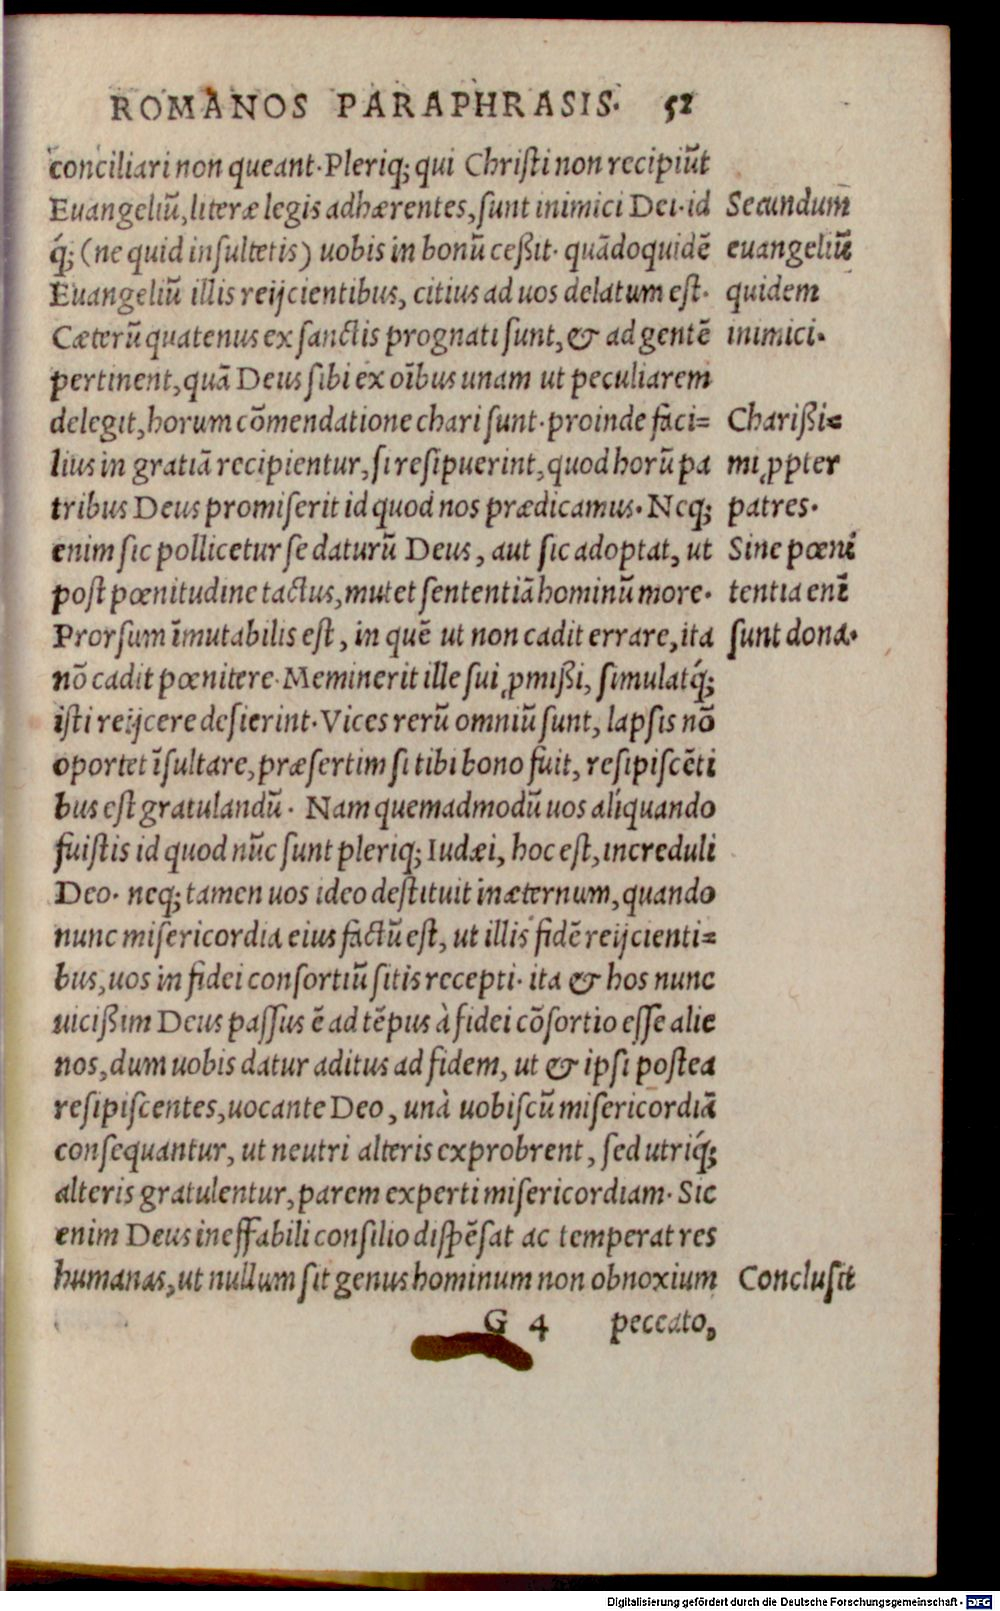 ROMANOS PARAPHRASIS. 52
conciliari non queant. Pleriq; qui Christi non recipiūt
Euangeliū, literæ legis adhærentes, sunt inimici Dei. id
q́; (ne quid insultetis) uobis in bonū ceßit. quādoquidē
Euangeliū illis reijcientibus, citius ad uos delatum est.
Cæterū quatenus ex sanctis prognati sunt, & ad gentē
pertinent, quā Deus sibi ex oībus unam ut peculiarem
delegit, horum cōmendatione chari sunt. proinde faci=
lius in gratiā recipientur, si resipuerint, quod horū pa
tribus Deus promiserit id quod nos prædicamus. Neq;
enim sic pollicetur se daturū Deus, aut sic adoptat, ut
post pœnitudine tactus, mutet sententiā hominū more.
Prorsum īmutabilis est, in quē ut non cadit errare, ita
nō cadit pœnitere. Meminerit ille sui ꝓmißi, simulatq́;
isti reijcere desierint. Vices rerū omniū sunt, lapsis nō
oportet īsultare, præsertim si tibi bono fuit, resipiscēti
bus est gratulandū. Nam quemadmodū uos aliquando
fuistis id quod nūc sunt pleriq; Iudæi, hoc est, increduli
Deo. neq; tamen uos ideo destituit in æternum, quando
nunc misericordia eius factū est, ut illis fidē reijcienti=
bus, uos in fidei consortiū sitis recepti. ita & hos nunc
uicißim Deus passus ē ad tēpus à fidei cōsortio esse alie
nos, dum uobis datur aditus ad fidem, ut & ipsi postea
resipiscentes, uocante Deo, unà uobiscū misericordiā
consequantur, ut neutri alteris exprobrent, sed utriq́;
alteris gratulentur, parem experti misericordiam. Sic
enim Deus ineffabili consilio dispēsat ac temperat res
humanas, ut nullum sit genus hominum non obnoxium
G 4 peccato,
Secundum
euangeliū
quidem
inimici.
Charißi=
mi ꝓpter
patres.
Sine pœni
tentia enī
sunt dona.
Conclusit
Digitalisierung gefördert durch die Deutsche Forschungsgemeinschaft - DFG